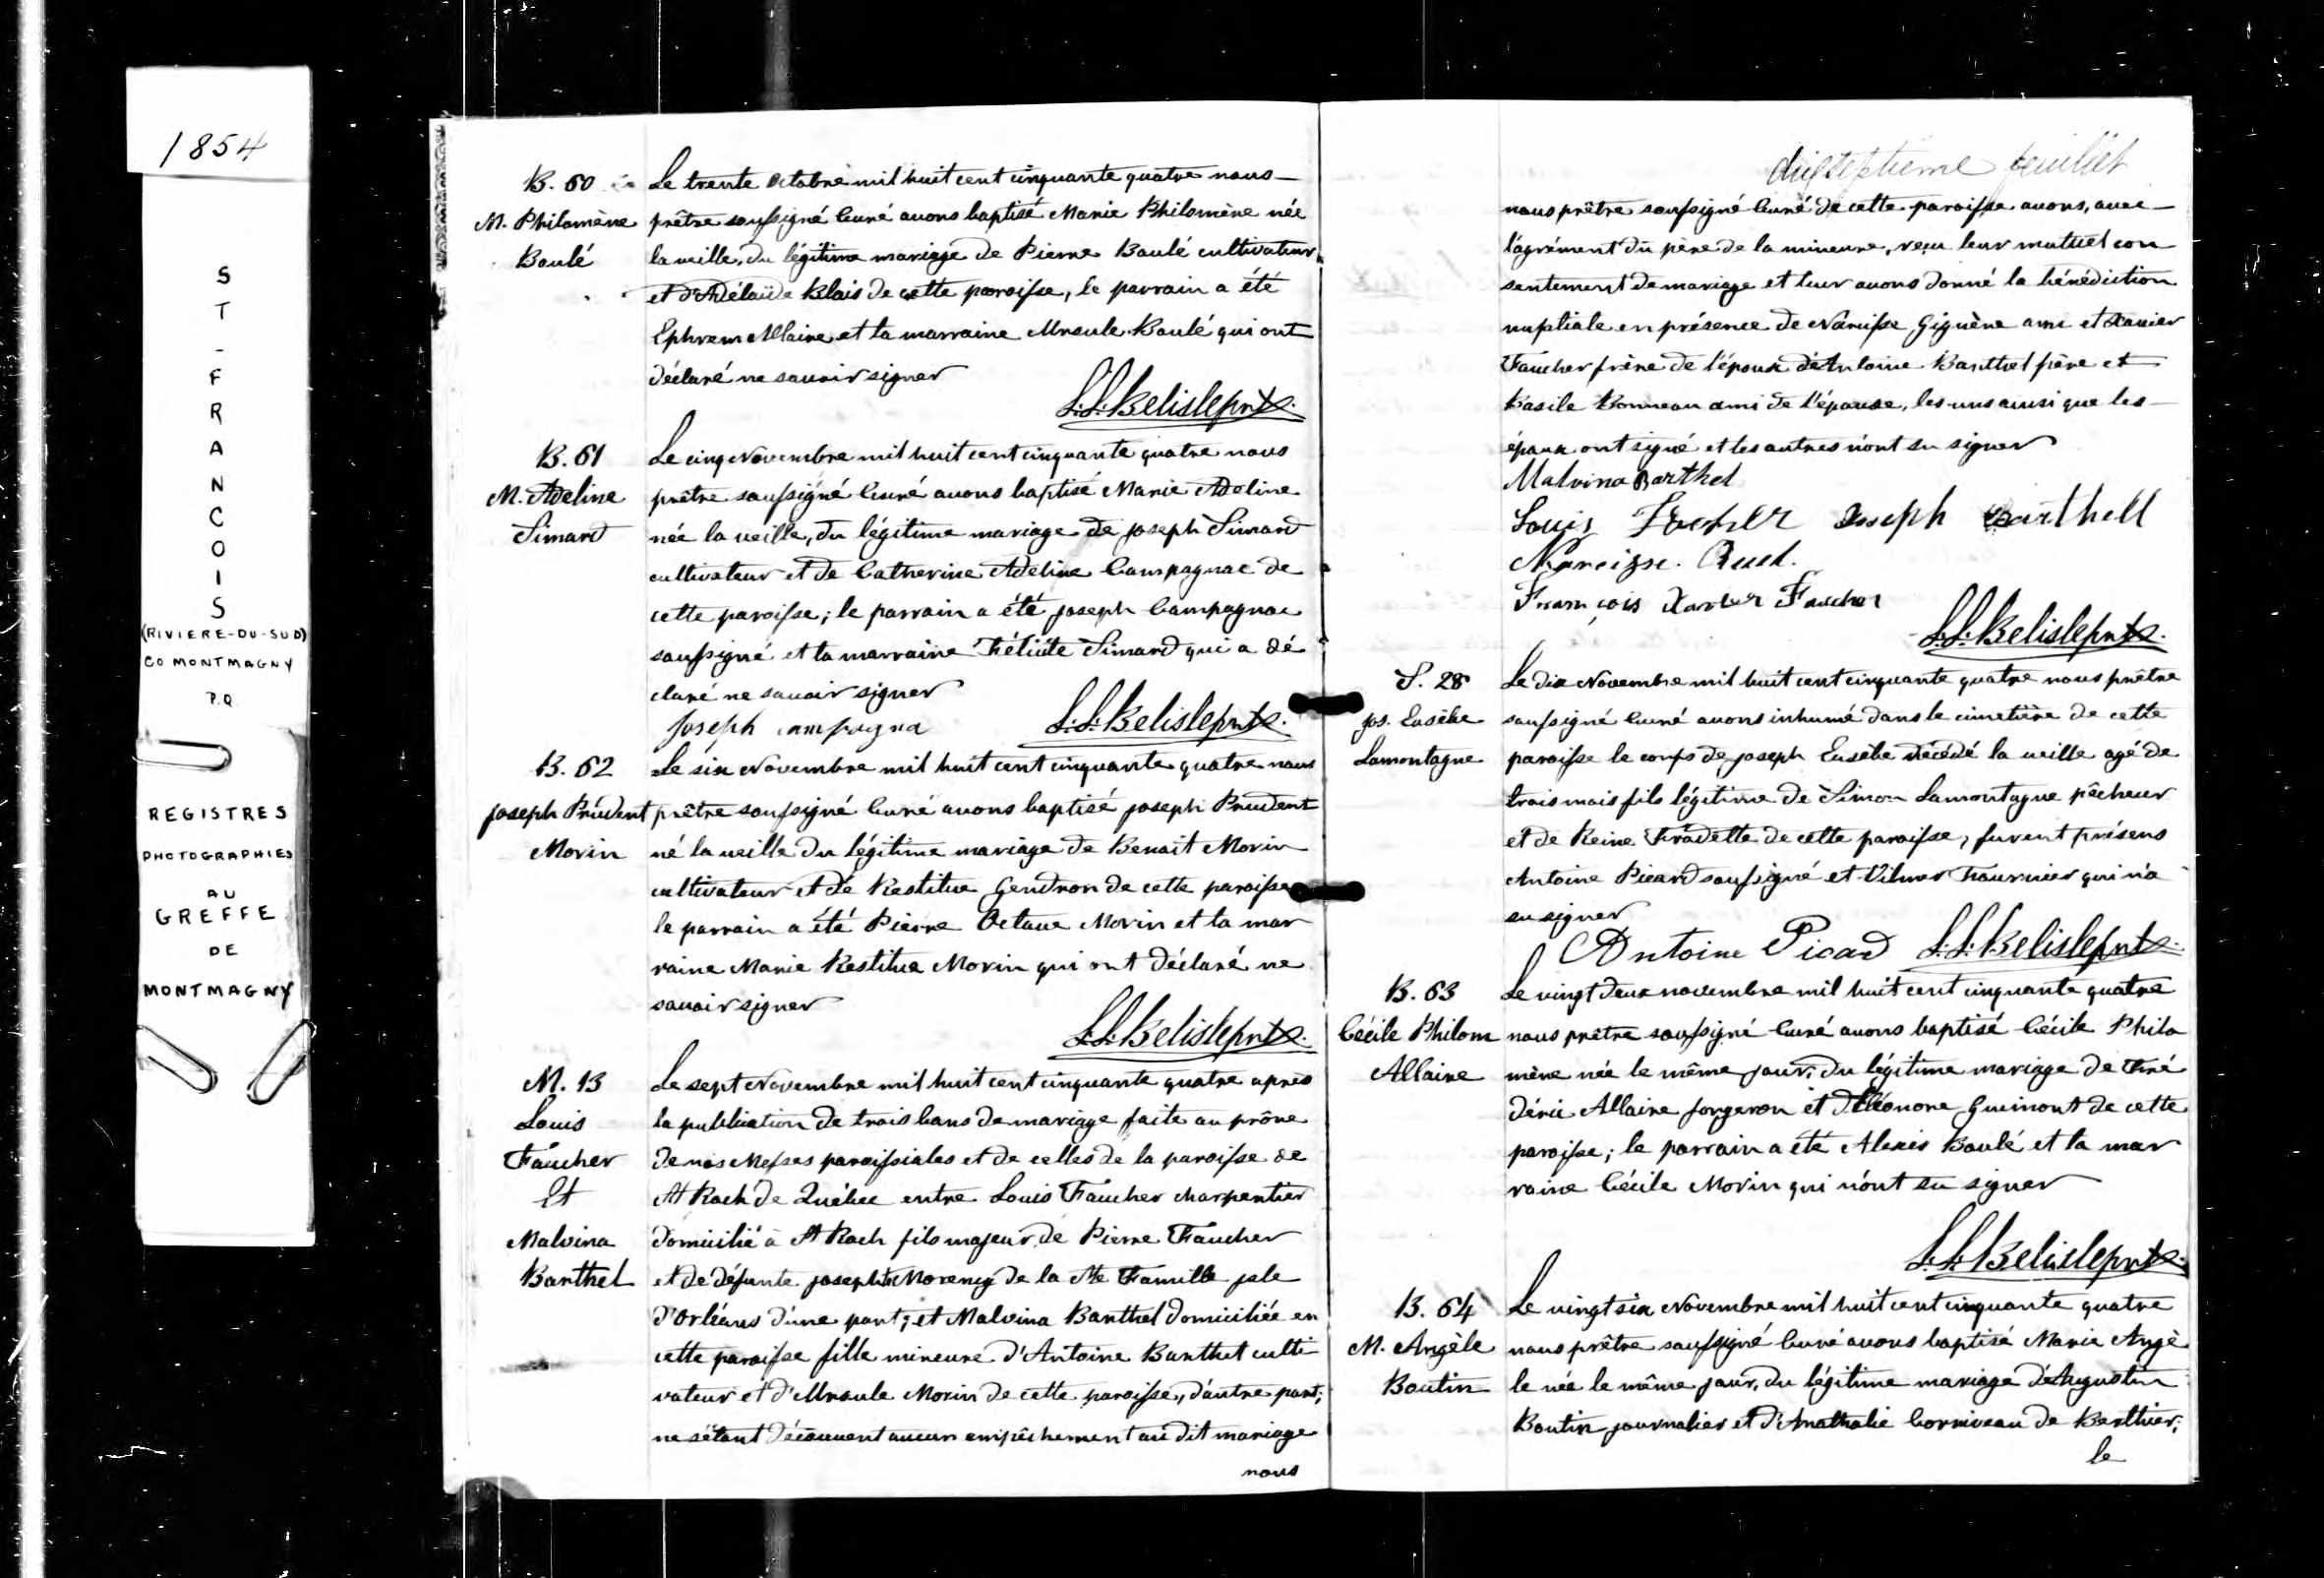 1854
ST-FRANCOIS
(RIVIERE-DU-SUD)
CO MONTMAGNY
P.Q
REGISTRES
PHOTOGRAPHIES
AU
GREFFE
DE
MONTMAGNY
B. 60
M. Philomène
Boulé
Le trente Octobre mil huit cent cinquante quatre nous
prêtre soussigné Curé avons baptisé Marie Philomène née
la veille, du légitime mariage de Pierre Boulé cultivateur
et d'Adélaïde Blais de cette paroisse, le parrain a été
Ephrem Allaire et la marraine Ursule Boulé qui ont
déclaré ne savoir signer
L.L. Belisle ptre
B. 61
M. Adeline
Simard
Le cinq Novembre mil huit cent cinquante quatre nous
prêtre soussigné Curé avons baptisé Marie Adeline
née la veille, du légitime mariage de Joseph Simard
cultivateur et de Catherine Adeline Campagnac de
cette paroisse; le parrain a été Joseph Campagnac
soussigné et la marraine Félicité Simard qui a dé
claré ne savoir signer
Joseph Campagna L.L. Belisle ptre
B. 62
Joseph Prudent
Morin
Le six Novembre mil huit cent cinquante quatre nous
prêtre soussigné Curé avons baptisé Joseph Prudent
né la veille du légitime mariage de Benoit Morin
cultivateur et de Restitue Gendron de cette paroisse
le parrain a été Pierre Octave Morin et la mar
raine Marie Restitue Morin qui ont déclaré ne
savoir signer
L.L. Belisle ptre
M. 13
Louis
Faucher
Et
Malvina
Barthel
Le sept Novembre mil huit cent cinquante quatre après
la publication de trois bans de mariage faite au prône
de nos Messes paroissiales et de celles de la paroisse de
St Roch de Québec entre Louis Faucher charpentier
domicilié à St Roch fils majeur de Pierre Faucher
et de défunte Josephte Morency de la Ste Famille isle
d'Orléans d'une part; et Malvina Barthel domiciliée en
cette paroisse fille mineure d'Antoine Barthel culti
vateur et d'Ursule Morin de cette paroisse, d'autre part;
ne s'étant découvert aucun empêchement au dit mariage
nous
dixseptieme feuillet
nous prêtre soussigné Curé de cette paroisse avons, avec
l'agrément du père de la mineure, reçu leur mutuel con
sentement de mariage et leur avons donné la bénédiction
nuptiale en présence de Narcisse Giguère ami et Xavier
Faucher frère de l'époux d'Antoine Barthel père et
Basile Bonneau ami de l'épouse, les uns ainsi que les
époux ont signé et les autres n'ont su signer
Malvina Barthel
Louis Joseph Barthell
Narcisse
François Xavier Faucher
L.L. Belisle ptre
S. 28
Jos. Eusèbe
Lamontagne
Le dix Novembre mil huit cent cinquante quatre nous prêtre
soussigné Curé avons inhumé dans le cimetière de cette
paroisse le corps de Joseph Eusèbe décédé la veille agé de
trois mois fils légitime de Simon Lamontagne pêcheur
et de Reine Fradette de cette paroisse, furent présens
Antoine Picard soussigné et Vilmer Fournier qui n'a
su signer
Antoine Picard L.L. Belisle ptre
B. 63
Cécile Philom
Allaire
Le vingt deux novembre mil huit cent cinquante quatre
nous prêtre soussigné Curé avons baptisé Cécile Philo
mène née le même jour, du légitime mariage de Fré
déric Allaire forgeron et d'Eléonore Guimont de cette
paroisse; le parrain a été Alexis Boulé et la mar
raine Cécile Morin qui n'ont su signer
L.L. Belisle ptre
B. 64
M. Angèle
Boutin
Le vingt six Novembre mil huit cent cinquante quatre
nous prêtre soussigné Curé avons baptisé Marie Angè
le née le même jour, du légitime mariage d'Augustin
Boutin journalier et d'Anathalie Corriveau de Berthier;
le